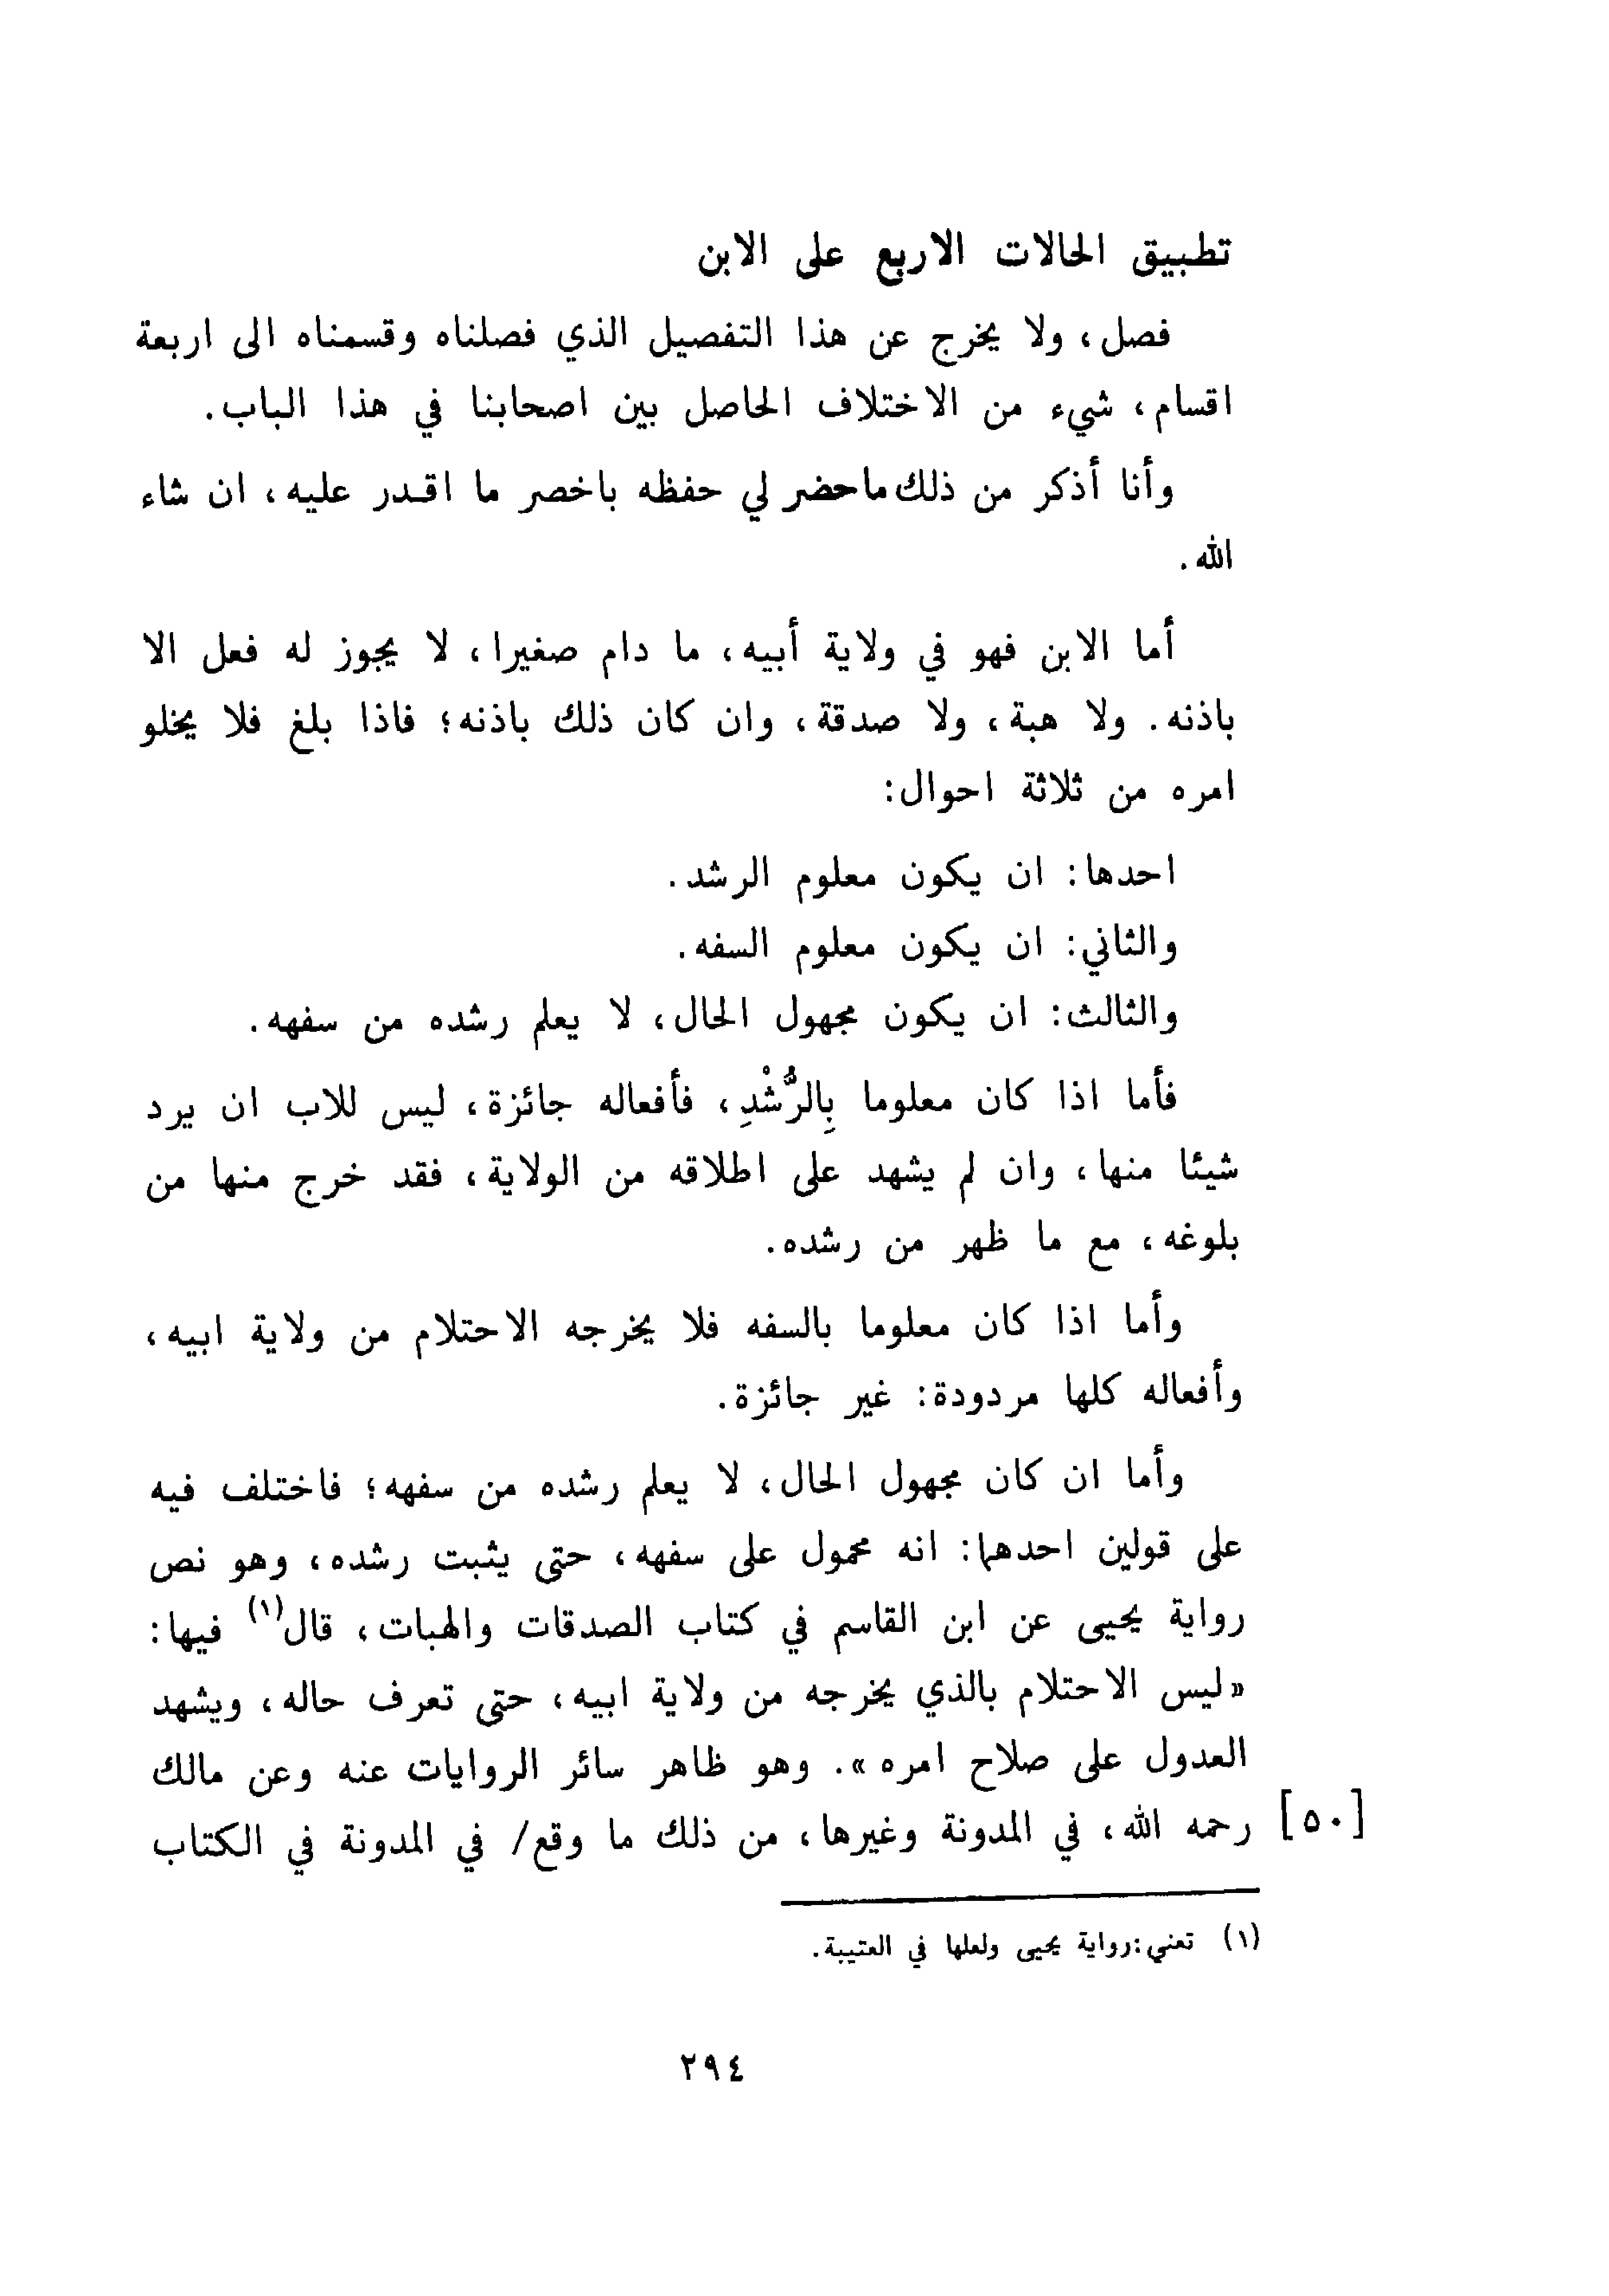 تطبيق الحالات الاربع على الابن
فصل، ولا يخرج عن هذا التفصيل الذي فصلناه وقسمناه الى اربعة
اقسام، شيء من الاختلاف الحاصل بين اصحابنا في هذا الباب.
وأنا أذكر من ذلك ماحضر لي حفظه باخصر ما اقدر عليه، ان شاء
الله.
أما الابن فهو في ولاية أبيه، ما دام صغيرا، لا يجوز له فعل الا
باذنه. ولا هبة، ولا صدقة، وان كان ذلك باذنه؛ فاذا بلغ فلا يخلو
امره من ثلاثة احوال:
احدها: ان يكون معلوم الرشد.
والثاني: ان يكون معلوم السفه.
والثالث: ان يكون مجهول الحال، لا يعلم رشده من سفهه.
فأما اذا كان معلوما بِالرُّشْدِ، فأفعاله جائزة، ليس للاب ان يرد
شيئا منها، وان لم يشهد على اطلاقه من الولاية، فقد خرج منها من
بلوغه، مع ما ظهر من رشده.
وأما اذا كان معلوما بالسفه فلا يخرجه الاحتلام من ولاية ابيه،
وأفعاله كلها مردودة: غير جائزة.
وأما ان كان مجهول الحال، لا يعلم رشده من سفهه؛ فاختلف فيه
على قولين احدهما: انه محمول على سفهه، حتى يثبت رشده، وهو نص
رواية يحيى عن ابن القاسم في كتاب الصدقات والهبات، قال(١) فيها:
«ليس الاحتلام بالذي يخرجه من ولاية ابيه، حتى تعرف حاله، ويشهد
العدول على صلاح امره». وهو ظاهر سائر الروايات عنه وعن مالك
[٥٠] رحمه الله، في المدونة وغيرها، من ذلك ما وقع/ في المدونة في الكتاب
(١) تعني: رواية يحيى ولعلها في العتيبة.
٢٩٤